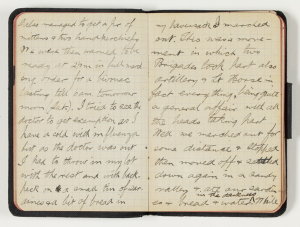 Giles managed to get a pr. of
mittens & two handkerchiefs
We were then warned to be
ready at 2pm in full mar
ching order for a bivouac
lasting till tom tomorrow
morn (sic). I tried to see the
doctor to get exemption as I
have a cold with influenza
but as the doctor was out
I had to throw in my lot
with the rest and with back
pack on & a small tin of sar
dines & a bit of bread in
my haversack I marched
out. This was a move-
ment in which two
Brigades took part also
artillery & Lt Horse in
fact everything, being quite
a general affair with all
the heads taking part
Well we marched out for
some distance & stopped
then moved off & settled
down again in a sandy
valley & ate our sardin
in the darkness
es & bread & water. While